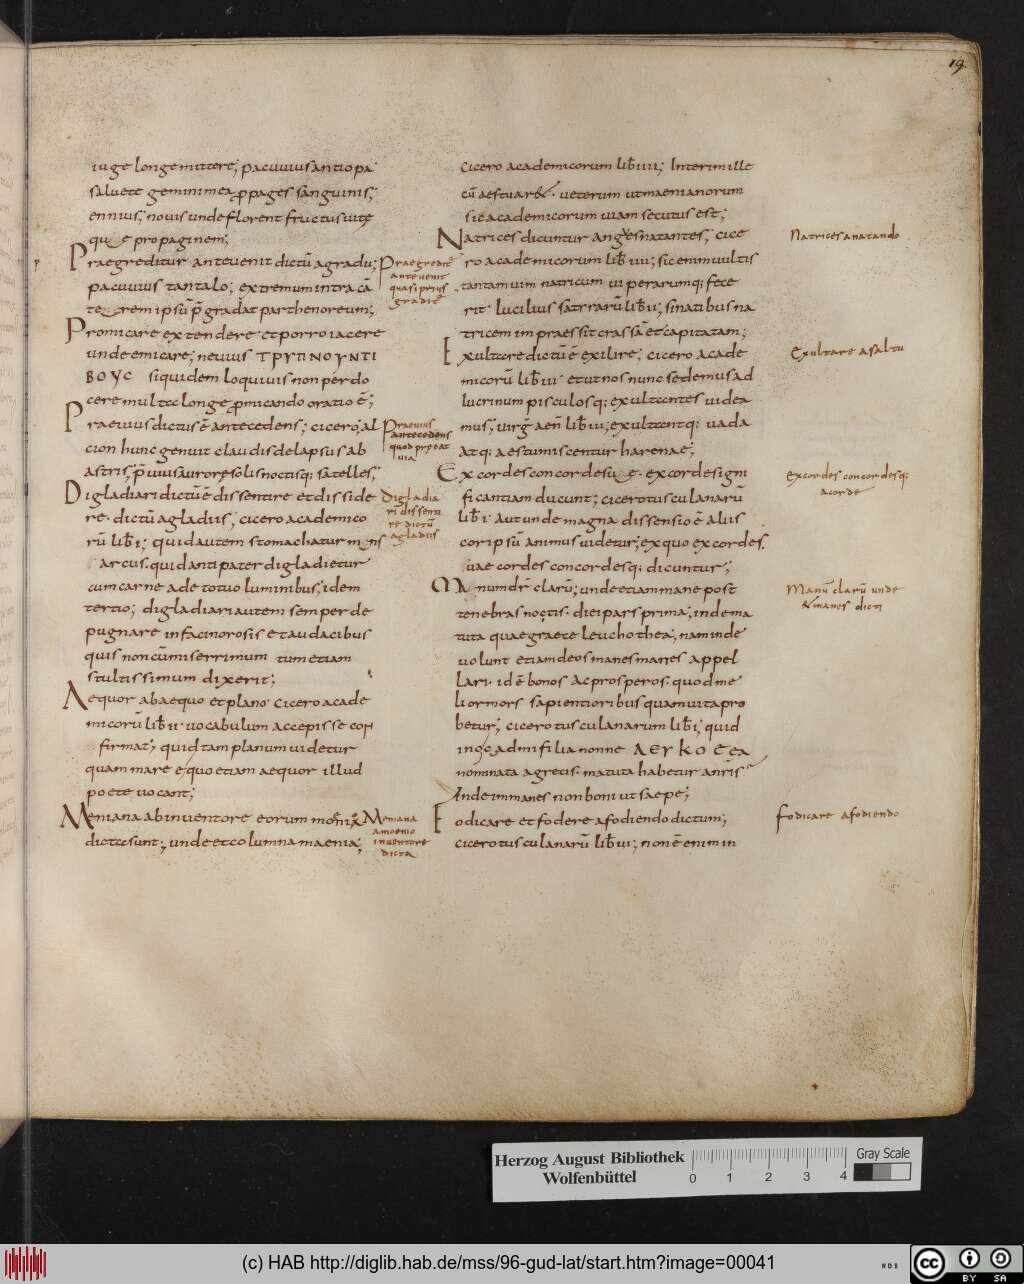 19.
iuge longe mittere; pacuuius antiopa
saluete gemini mea propages sanguinis;
ennius; nouis unde florent fructus uitę
que propaginem;
Praegreditur anteuenit dictū a gradu;
pacuuius tantalo; extremum intra cā
ter gregem ipsū p̄gradat parthenoreum;
Promicare extendere et porro iacere
unde emicare; neuius ΤΡΥΠΝΟΥΝΤΙ
ΒΟΥC siquidem loqui uis non perdo
cere multa longe promicando oratio ē;
Praeuius dictus ē antecedens; cicero; al
cion hunc genuit claudis delapsus ab
astris; p̄uius aurorę solis noctisq; satelles;
Digladiari dictū ē dissentire et disside
re. dictū a gladiis; cicero academico
rū lib̄ i; quid autem stomachatur mens
arcus. quid antipater digladietur
cum carneade totuo luminibus; idem
tertio; digladiari autem semper de
pugnare in facinorosis et audacibus
quis non cū miserrimum tum etiam
stultissimum dixerit;
Aequor ab aequo et plano cicero acade
micorū lib̄ ii uocabulum accepisse con
firmat; quid tam planum uidetur
quam mare e quo etiam aequor illud
poetę uocant;
Meniana ab inuentore eorum
dicta sunt; unde et columna maenia;
Praegredit̄
anteuenit
quasi prius
gradit̄
Praeuius
antecedens
quod pręeat
uia
Digladia
ri dissenti
re dictū
a gladiis
Meniana
a moenio
inuentore
dicta
cicero academicorum lib̄ iiii; Interim ille
cū aestuaret. ueterum ut maenianorum
sic academicorum uiam secutus est;
Natrices dicuntur angues natantes; cice
ro academicorum lib̄ iiii; sic enim uultis
tantam uim natricum uiperarumq; fece
rit lucilius satyrarū lib̄ ii; si natibus na
tricem impraessit crassā et capitatam;
Exultare dictū ē exilire; cicero acade
micorū lib̄ iii et ut nos nunc sedemus ad
lucrinum pisculosq; exultantes uidea
mus; uirḡ aen̄ lib̄ iii; exultantq; uada
atq; aestu miscentur harenae;
Excordes concordesq; ex corde signi
ficantiam ducunt; cicero tusculanarū
lib̄ i. aut unde magna dissensio ē aliis
cor ipsū animus uidetur; ex quo excordes.
uae cordes concordesq; dicuntur;
Manum dr̄ clarū; unde etiam mane post
tenebras noctis. diei pars prima; inde ma
tuta quae graece leuchothea; nam inde
uolunt etiam deos manes manes appel
lari. id ē bonos ac prosperos. quod me
lior mors sapientioribus quam uita pro
betur; cicero tusculanarum lib̄ i; quid
ino cadmi filia nonne ΛΕΥΚΟΘΕΑ
nominata a grecis. matuta habetur a nr̄is.
Inde immanes non boni ut saepe;
Fodicare et fodere a fodiendo dictum;
cicero tusculanarū lib̄ iii; non ē enim in
Natrices a natando
Exultare a saltu
excordes concordesq;
a corde
Manū clarū unde
& manes dicti
fodicare a fodiendo
Herzog August Bibliothek
Wolfenbüttel
0 1 2 3 4
Gray Scale
(c) HAB http://diglib.hab.de/mss/96-gud-lat/start.htm?image=00041
WDB
cc BY SA